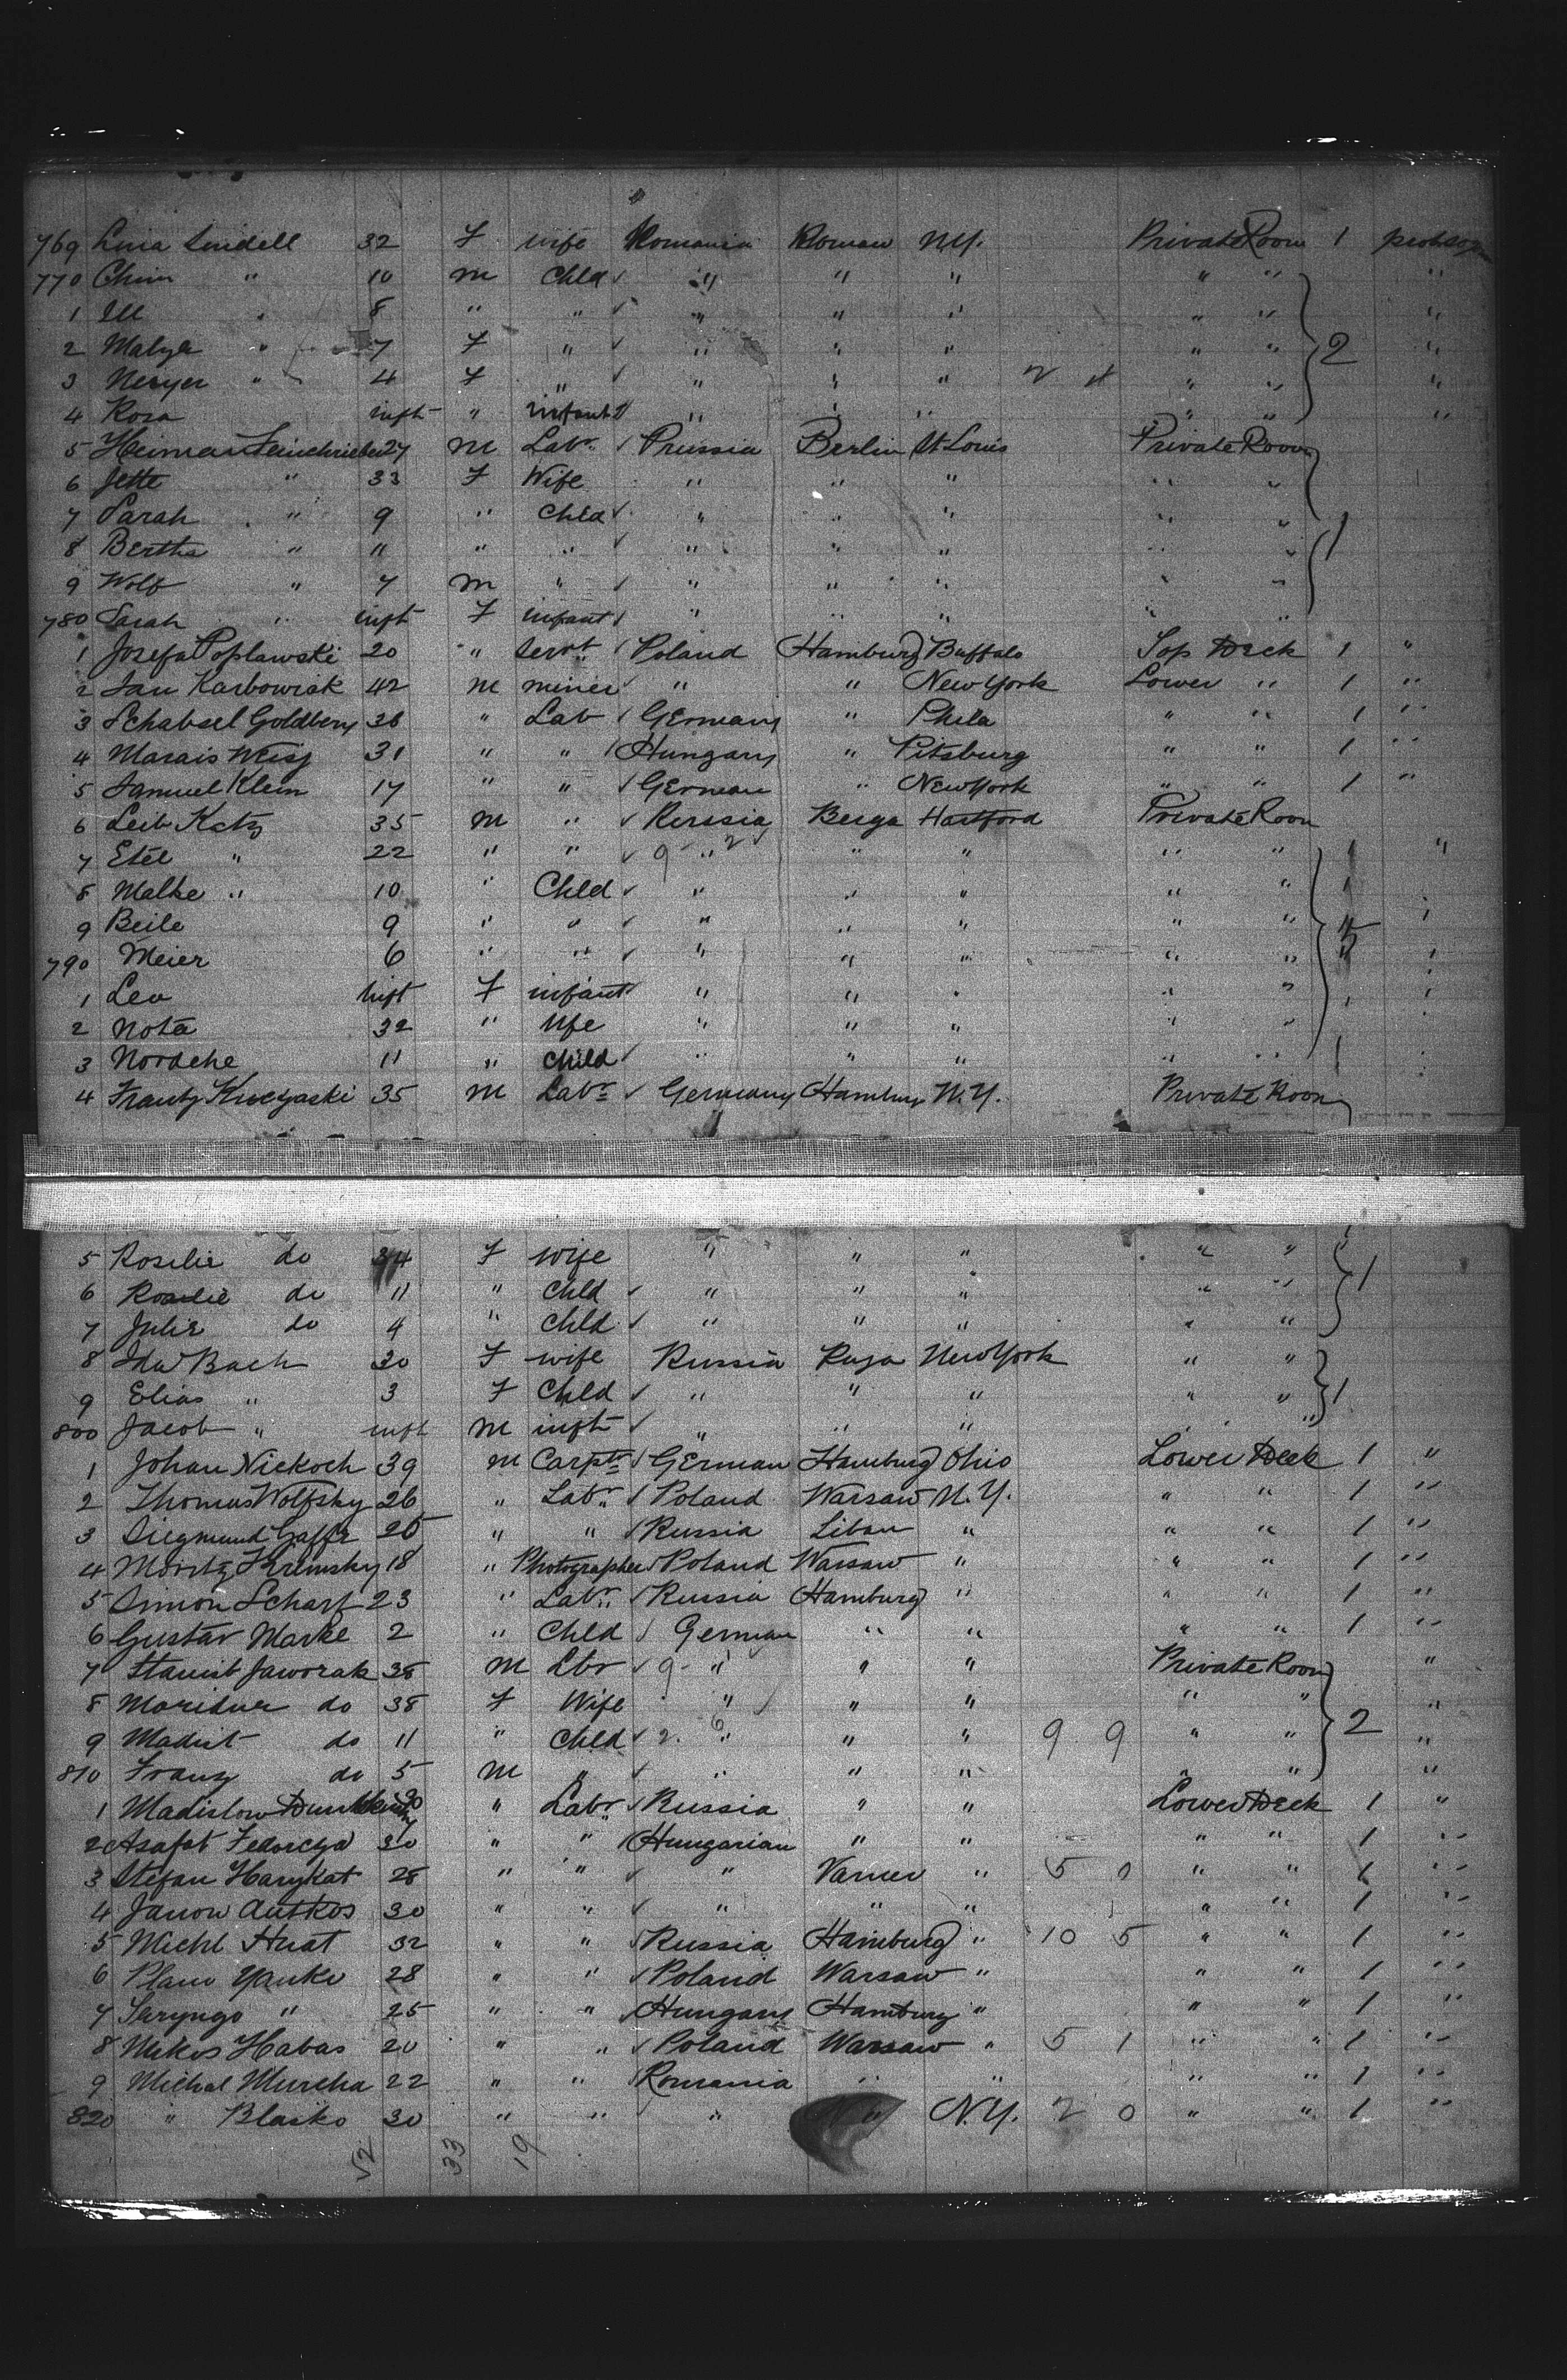 769 Lina Sindell 32 F wife Romania Roman N.Y. Private Room 1
770 Chim " 10 m Chld " " " " "
1 Ill " 8 " " " " " " " "
2 Malye " 7 F " " " " " " 2 "
3 Meryer " 4 F " " " " " " "
4 Rosa inft " infant " " " " " "
5 Heiman Feinchrieber 27 m Labr. Prussia Berlin St Louis Private Room
6 Jette " 33 F Wife " " " " "
7 Sarah " 9 " Chld " " " " "
8 Bertha " 11 " " " " " " " 1
9 Wolf " 7 m " " " " " "
780 Sarah " inft F infant " " " " "
1 Josefa Poplawski 20 " servt Poland Hamburg Buffalo Top Deck 1 "
2 Jan Karbowiak 42 m miner " " New York Lower " 1 "
3 Schabsel Goldberg 36 " Lab Germany " Phila " " 1 "
4 Marais Weisz 31 " " Hungary " Pitsburg " " 1 "
5 Samuel Klein 17 " " German " New York " " 1 "
6 Leib Katz 35 m " Russia Hartford Private Room
7 Etel " 22 " " " " " " " "
8 Malke " 10 " Chld " " " " "
9 Beile 9 " " " " " " "
790 Meier 6 " " " " " " "
1 Lea inft F infant " " " " "
2 Nota 32 " wfe " " " " "
3 Nordche 11 " child " " " " "
4 Frantz 35 m Labr Germany Hamburg N.Y. Private Room
5 Roselie do 34 F wife " " " " "
6 Roselie do 11 " Chld " " " " " 1
7 Julie do 4 " Chld " " " " "
8 Ida Bach 30 F wife Russia New York " "
9 Elias " 3 F Chld " " " " " 1
800 Jacob " infh m infh " " " "
1 Johan Nickoch 39 m Carptr German Hamburg Ohio Lower Deck 1 "
2 Thomas Wolfsky 26 " Labr Poland Warsaw N.Y. " " 1 "
3 Siegmund 25 " " Russia Libau " " " 1 "
4 Moritz Krimsky 18 " Photographer Poland Warsaw " " " 1 "
5 Simon Scharf 23 " Labr Russia Hamburg " " " 1 "
6 Gustav Marke 2 " Chld German " " " " 1 "
7 Stanisl Jaworak 38 m Lbr 9 " " " Private Room "
8 do 38 F Wife " " " " " "
9 do 11 " Chld 2 6 " " " 9 9 " " 2 "
810 Franz do 5 m " " " " " " "
1 Madislow 30 " Labr Russia " " Lower Deck 1 "
2 Asafat 30 " " Hungarian " " " " 1 "
3 Stefan Harykat 28 " " " " 5 0 " " 1 "
4 Janow Autkos 30 " " " " " " " 1 "
5 Michl Huat 32 " " Russia Hamburg " 10 5 " " 1 "
6 Yanko 28 " " Poland Warsaw " " " 1 "
7 " 25 " " Hungary Hamburg " " " 1 "
8 Mikos Habas 20 " " Poland Warsaw " 5 1 " " 1 "
9 Michal Murcha 22 " " Romania " " " " 1 "
820 " Blasko 30 " " " " N.Y. 2 0 " " 1 "
52 33 19